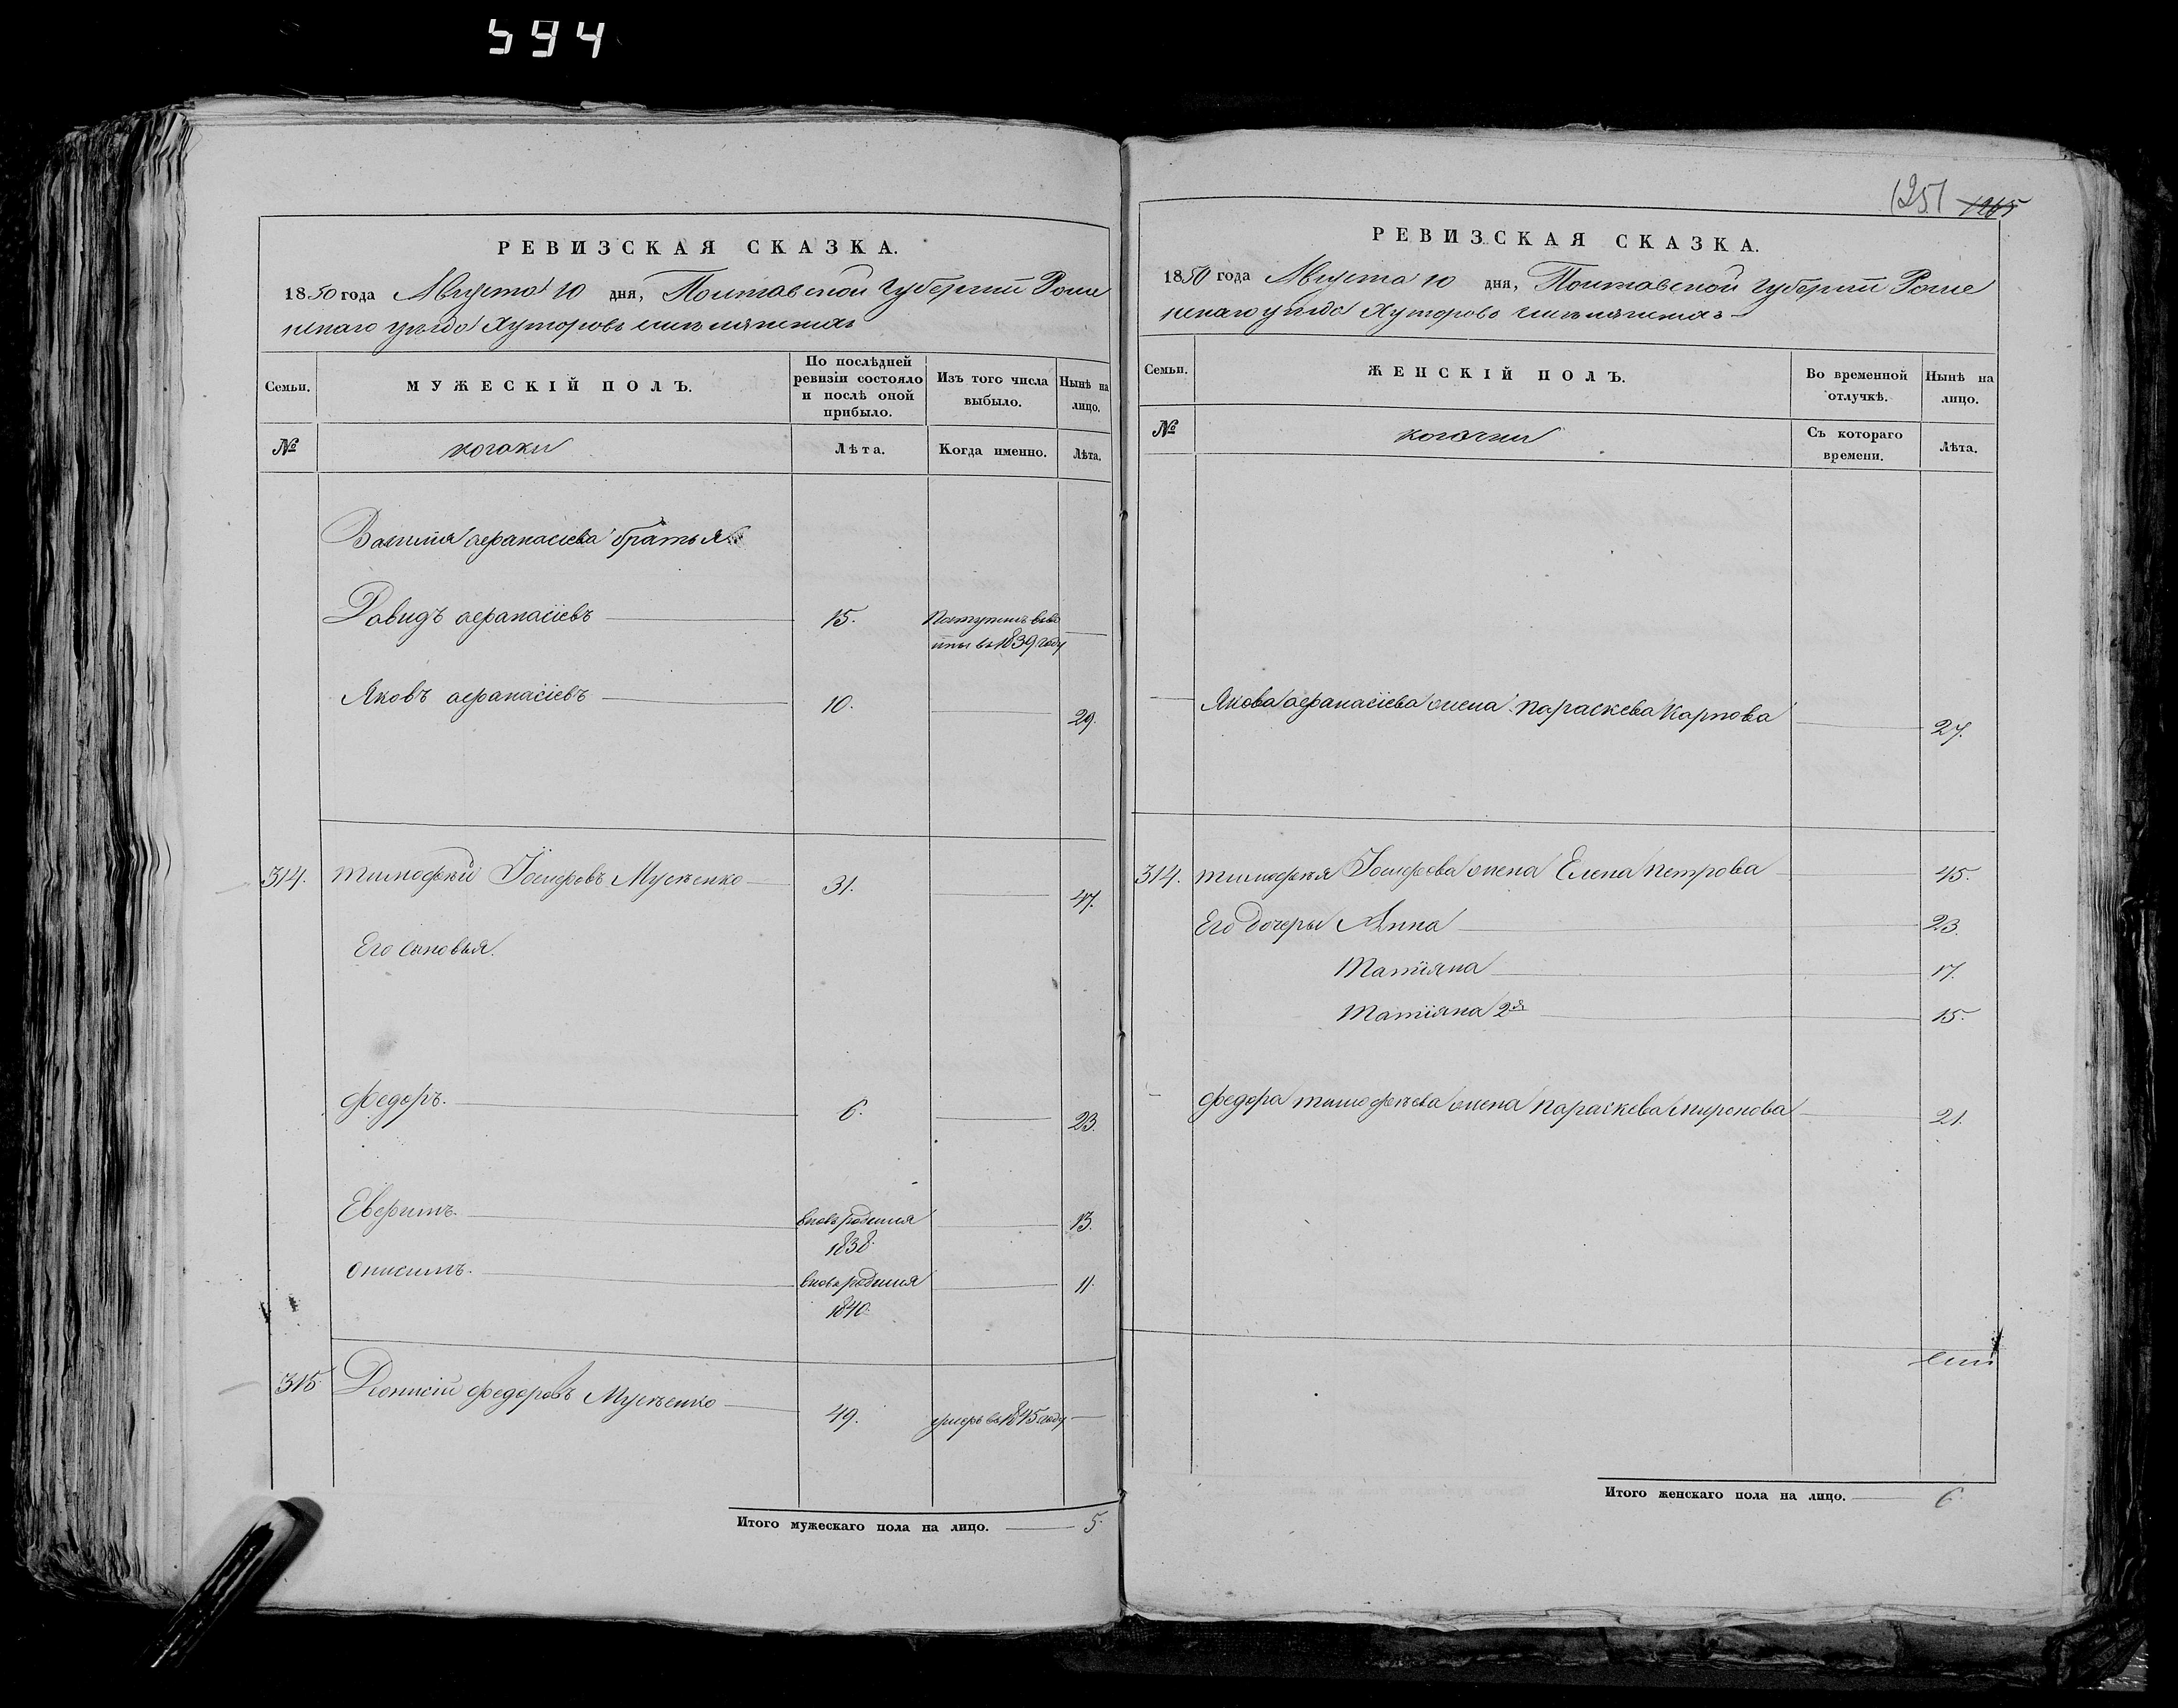 594
РЕВИЗСКАЯ СКАЗКА.
1850 года Августа 10 дня, Полтавской Губернiи Роме
нскаго уѣзда Хуторовъ
Семьи.
МУЖЕСКІЙ ПОЛЪ.
По послѣдней ревизіи состояло и послѣ оной прибыло.
Изъ того числа выбыло.
Нынѣ на лицо.
№
козаки
Лѣта.
Когда именно.
Лѣта.
Василія афанасіева братья
Давидъ афанасіевъ 15. Поступилъ въ 1839 году
Яковъ афанасіевъ 10. 29.
314. тимофѣй Іосифовъ Мусѣенко 31. 47.
Его сыновья.
федоръ. 6. 23.
Евфимъ. вновь родился 13.
1838.
онисимъ. вновь родился 11.
1840.
315 Діонисій федоровъ Мусѣенко 49. умеръ въ 1845 году
Итого мужескаго пола на лицо. 5.
1251 1265
РЕВИЗСКАЯ СКАЗКА.
1850 года Августа 10 дня, Полтавской Губернiи Роме
нскаго уѣзда Хуторовъ
Семьи.
ЖЕНСКІЙ ПОЛЪ.
Во временной отлучкѣ.
Нынѣ на лицо.
№
козачки
Съ котораго времени.
Лѣта.
Якова афанасіева жена параскева Карпова 27.
314. тимофѣя Іосифова жена Елена петрова 45.
Его дочеры Анна 23.
Матіяна 17.
Матіяна 2я 15.
федора тимофѣева жена параскева миронова 21.
Итого женскаго пола на лицо. 6.